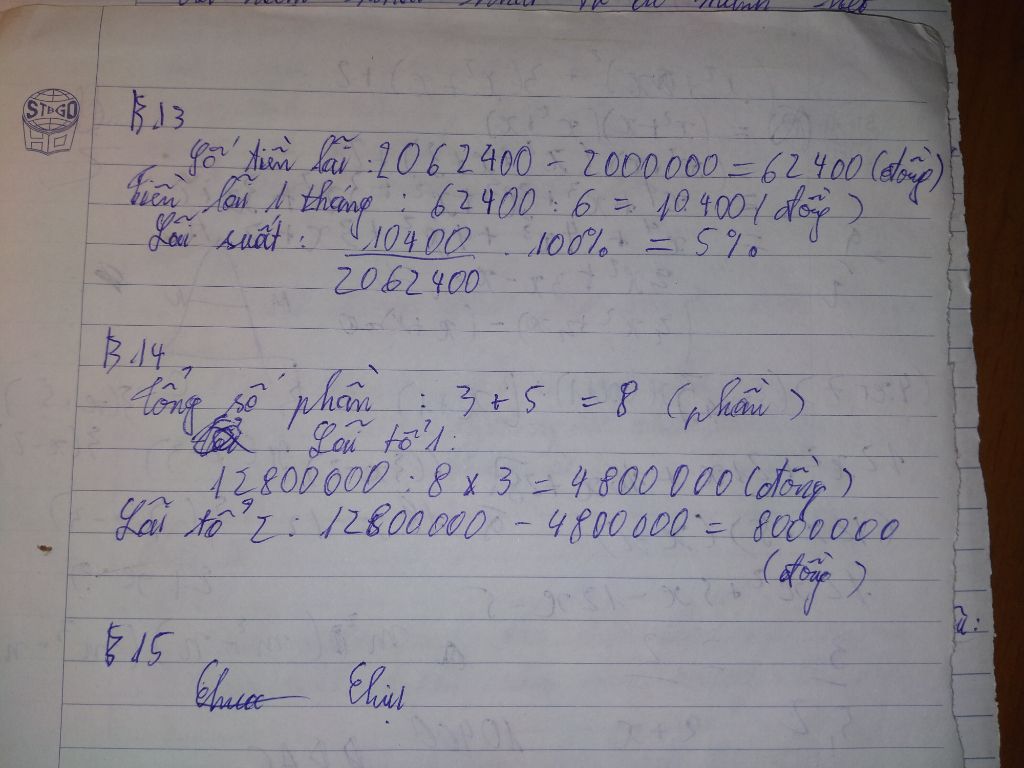 STAGO
B 13
Số tiền lãi : 2062400 - 2000000 = 62400 (đồng)
Tiền lãi 1 tháng : 62400 : 6 = 10400 (đồng)
Lãi suất : 10400 / 2062400 . 100% = 5%
B 14
Tổng số phần : 3 + 5 = 8 (phần)
Lãi tổ 1:
12800000 : 8 x 3 = 4800000 (đồng)
Lãi tổ 2 : 12800000 - 4800000 = 8000000
(đồng)
B 15